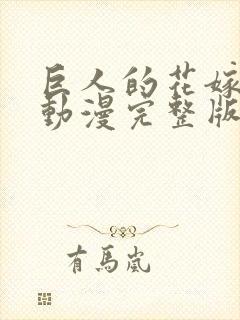 巨人的花嫁
動漫完整版
有馬嵐